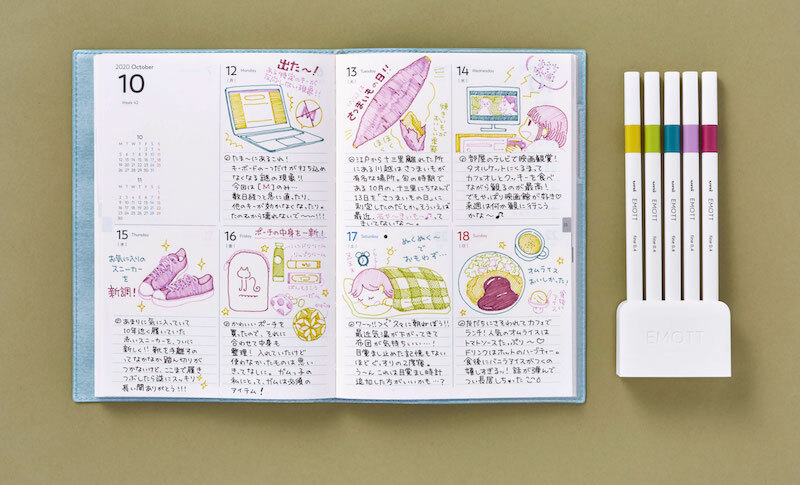 2020 October
10
Week 42
10
M T W T F S S
11
M T W T F S S
12 Monday
(月)
出た〜！
ある特定のキーが
反応しない現象！！
たま〜にあるこれ！
キーボードの一つだけが打ち込め
なくなる謎の現象！！
今回は［M］のみ…
数日経つと急に直ったり、
他のキーが効かなくなったり。
13 Tuesday
(火)
さつまいもの日！！
焼きいもが
おいしい季節
ほく
ほく
江戸から十三里離れた所
にある川越はさつまいもが
有名な場所。旬の時期で
ある10月の、十三里にちなんで
13日を"さつまいもの日"に
制定したのだとか。そういえば
最近、石や〜きいも〜♪って
きいてないな〜。
14 Wednesday
(水)
部屋のテレビで映画観賞！
タオルケットにくるまって
カフェオレとクッキーを食べ
ながら観るのが最高！
でもやっぱり映画館が好き♡
来週は何か観に行こう
かな〜♪
15 Thursday
(木)
お気に入りの
スニーカー
を
新調！
あまりに気に入っていて
10年近く履いていた
赤いスニーカーを、ついに
新しく！！靴って手離すの
ってなかなか踏ん切りが
つかないけど、ここまで履き
つぶしたら逆にスッキリ
長い間ありがとう！！！
16 Friday
(金)
ポーチの中身を一新！
ハンドクリーム
リップクリーム
ガム
かわいいポーチを
買ったので、それに
合わせて中身も
整理！入れていたけど
使わなかったものは思い
きってなしに。ガムっ子の
私にとって、ガムは必須の
アイテム！
17 Saturday
(土)
ぬくぬく〜で
おもわず…
ワーッ！！つぐスマに頼ねぼう！！
最近気温が下がってきて
布団が気持ちいい…
目覚まし止めた記憶もない
ほどぐっすりの2度寝。
う〜んこれは目覚まし時計
追加した方がいいかも…？
18 Sunday
(日)
オムライス
おいしかった！
友だちにさそわれてカフェで
ランチ！人気のオムライスは
トマトソースたっぷり〜♡
ドリンクはホットのハーブティー。
食後にバニラアイスがつくの
も嬉しすぎる〜！話が弾んで
つい長居しちゃった
uni EMOTT fine 0.4
uni EMOTT fine 0.4
uni EMOTT fine 0.4
uni EMOTT fine 0.4
uni EMOTT fine 0.4
EMOTT